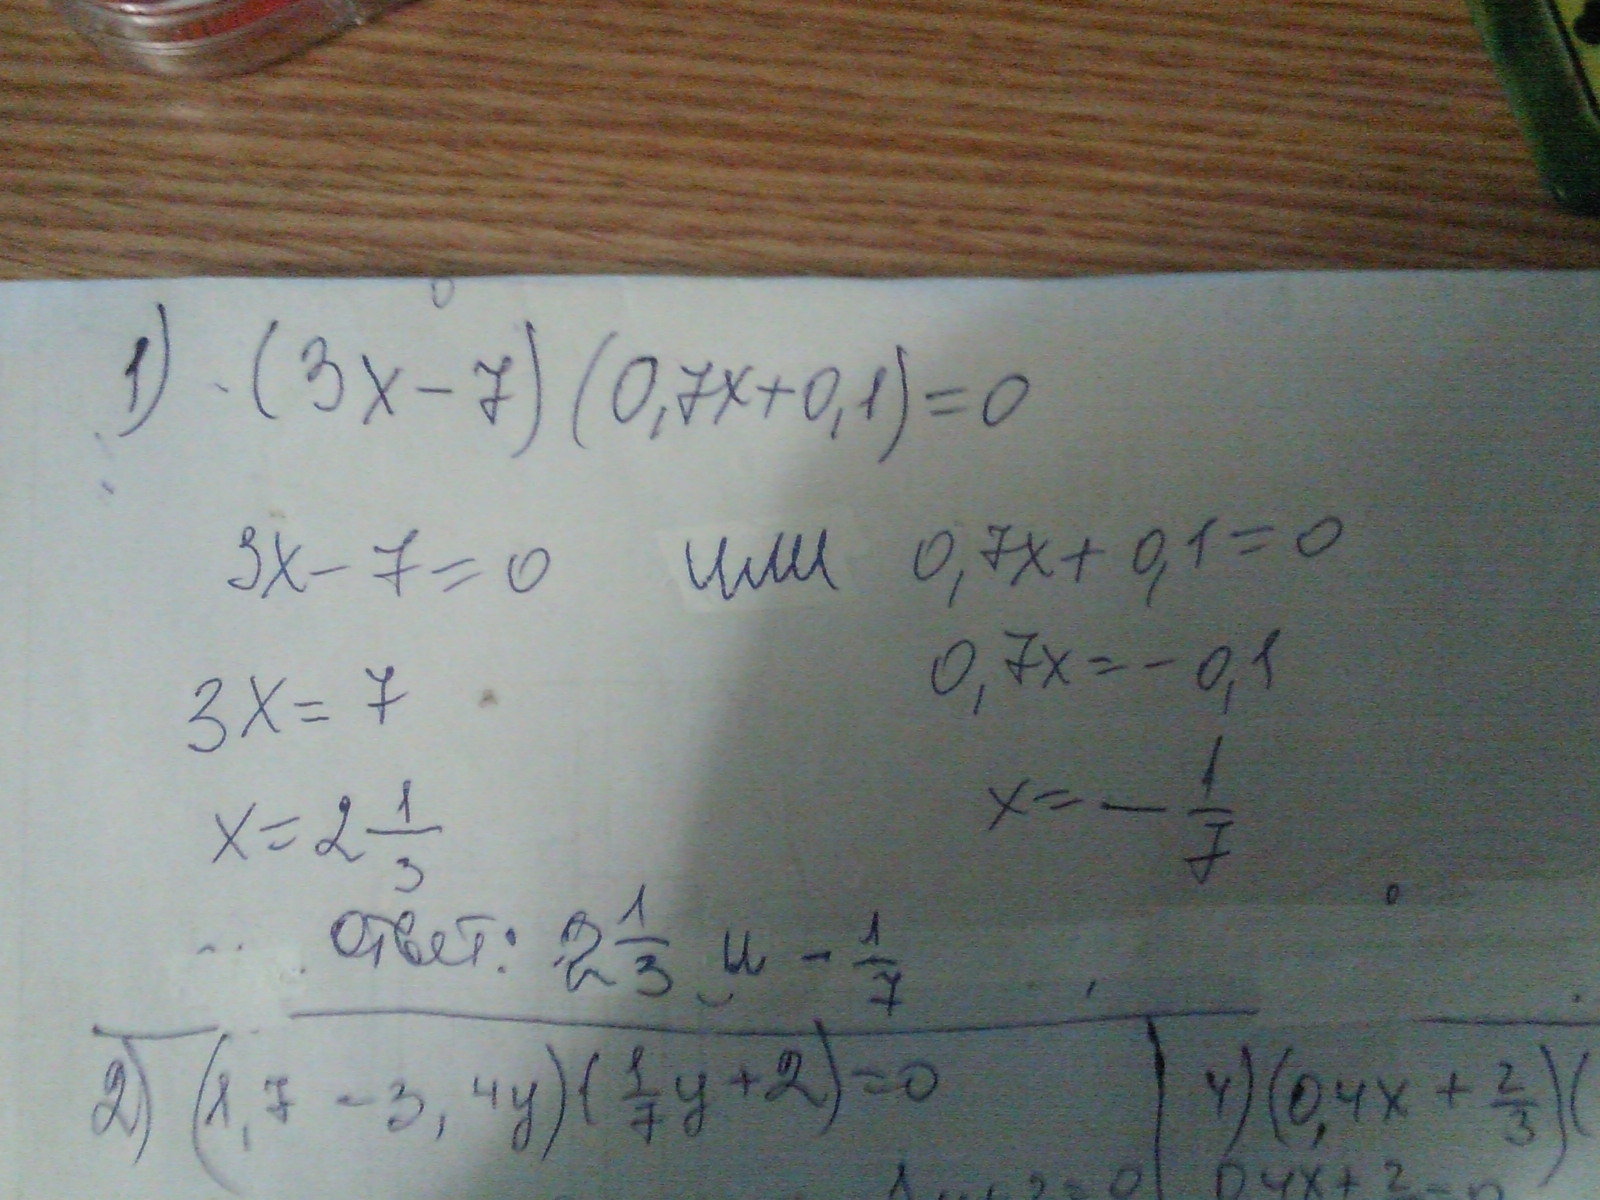 1) (3x-7)(0,7x+0,1)=0
3x-7=0 или 0,7x+0,1=0
3x=7 0,7x=-0,1
x=2 1/3 x=-1/7
ответ: 2 1/3 и -1/7
2) (1,7-3,4y)(1/7y+2)=0
4) (0,4x+2/3)(
0,4x+2=0